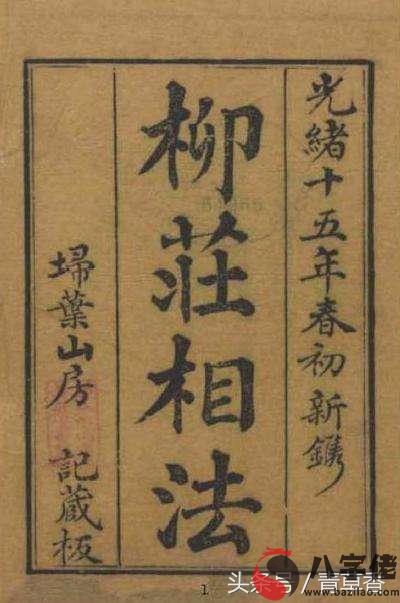 光緒十五年春初新鐫
柳莊相法
埽葉山房 記藏板
1
头条号/青草香
八字佬
www.bazilao.com